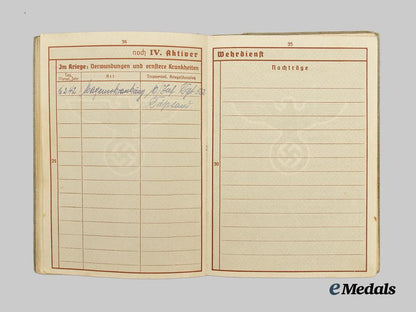 34
noch IV. Aktiver
Im Kriege: Verwundungen und ernstere Krankheiten
Tag, Monat, Jahr Art Truppenteil, Kriegslazarett
6.2.42 Magenerkrankung
31
35
Wehrdienst
Nachträge
30
eMedals